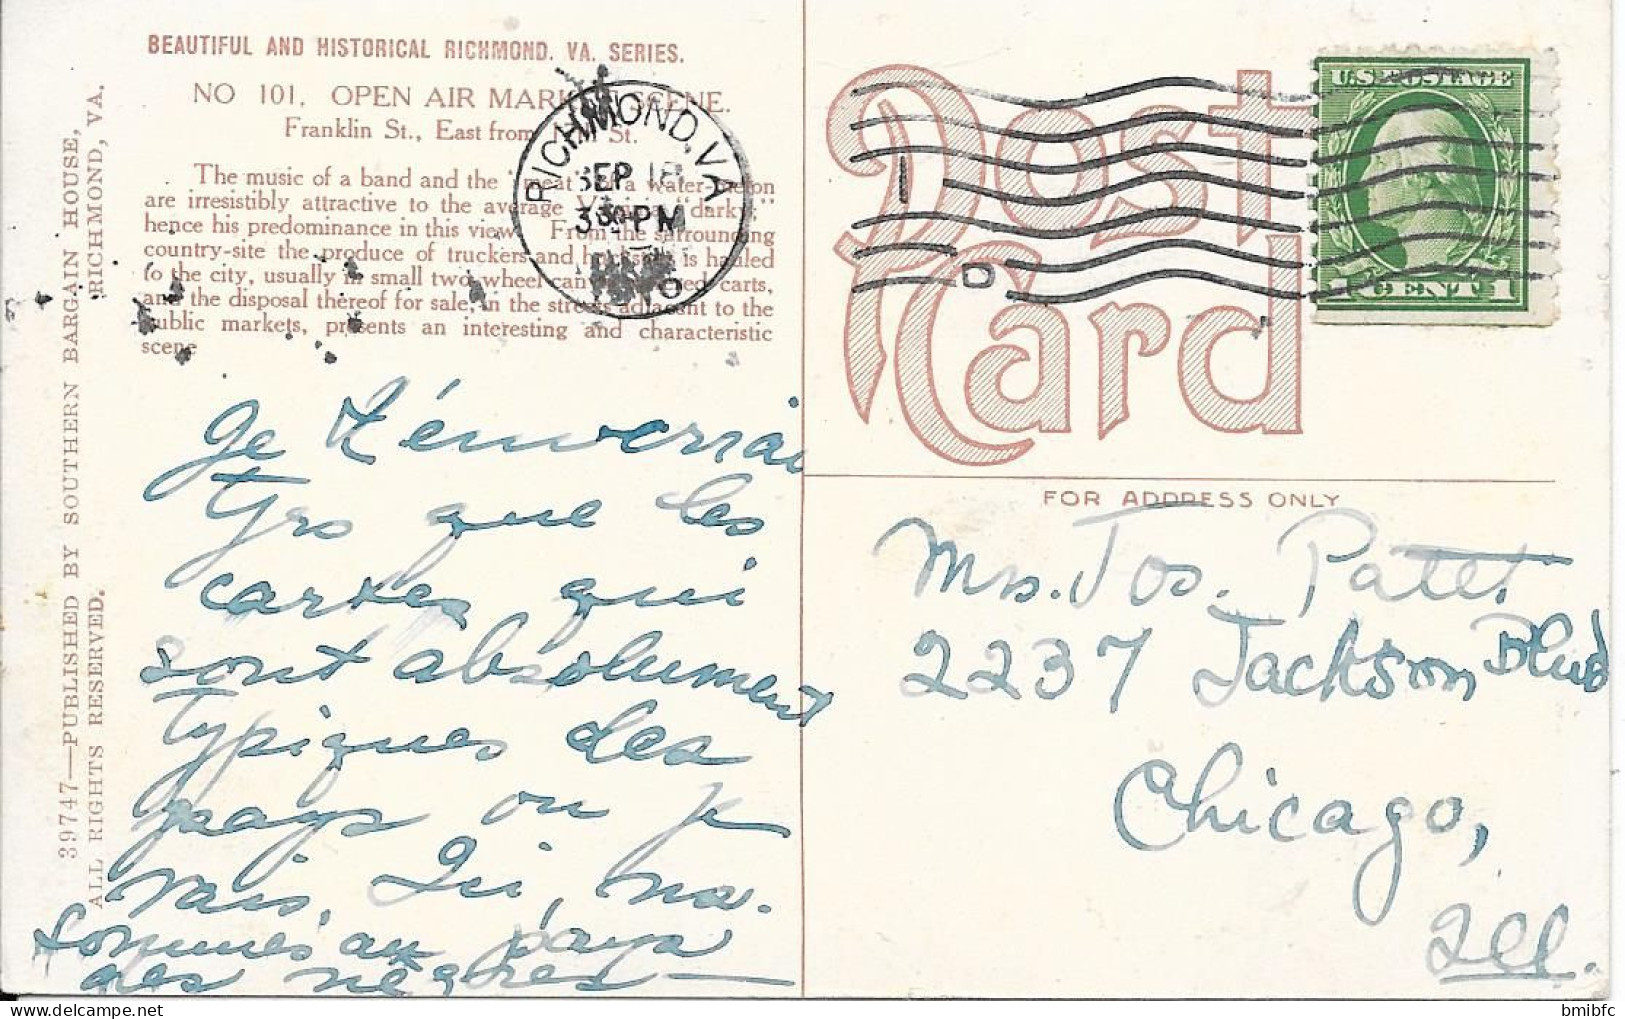 BEAUTIFUL AND HISTORICAL RICHMOND. VA. SERIES.
NO 101. OPEN AIR MARKET SCENE.
Franklin St., East from St.
The music of a band and the meat of a water-melon
are irresistibly attractive to the average "darky;"
hence his predominance in this view. From the surrounding
country-site the produce of truckers and is hauled
to the city, usually in small two wheel carts,
and the disposal thereof for sale, in the streets adjacent to the
public markets, presents an interesting and characteristic
scene
39747—PUBLISHED BY SOUTHERN BARGAIN HOUSE,
RICHMOND, VA.
ALL RIGHTS RESERVED.
RICHMOND, VA
SEP 18
330 PM
1910
Post
Card
U.S. POSTAGE
1 CENT 1
FOR ADDRESS ONLY
Je t'enverrai
que les
cartes qui
sont absolument
typiques des
pays ou je
vais. Ici, ns.
sommes au pays
des nègres —
Mrs. Jos. Patet
2237 Jackson Blvd
Chicago,
Ill.
bmibfc